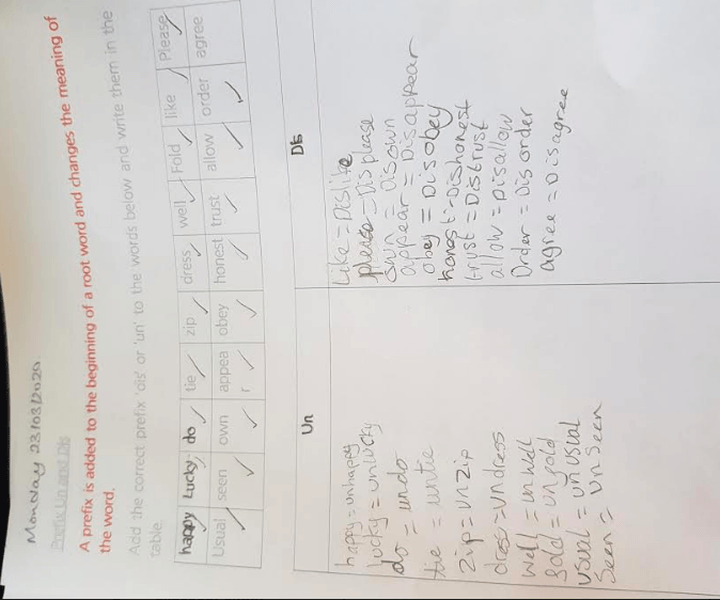 Monday 23/03/2020
Prefix Un and Dis
A prefix is added to the beginning of a root word and changes the meaning of
the word.
Add the correct prefix 'dis' or 'un' to the words below and write them in the
table.
happy Lucky do tie zip dress well Fold like Please
Usual seen own appea obey honest trust allow order agree
r
Un
happy = unhappy
lucky = unlucky
do = undo
tie = untie
zip = unzip
dress = undress
well = unwell
= 
usual = unusual
Seen = unseen
Dis
Like = Dislike
please = Displease
own = Disown
appear = Disappear
obey = Disobey
honest = Dishonest
trust = Distrust
allow = Disallow
Order = Disorder
agree = Disagree